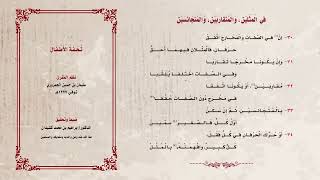 في المثلين، والمتقاربين، والمتجانسين
٣٠- إن في الصفات والمخارج اتفق
حرفان فالمثلان فيهما أحق
٣١- وإن يكونا مخرجا تقاربا
وفي الصفات اختلفا يلقبا
٣٢- مقاربين، أو يكونا اتفقا
في مخرج دون الصفات حققا
٣٣- بالمتجانسين، ثم إن سكن
أول كل فالصغير سمين
٣٤- أو حرك الحرفان في كل فقل
كل كبير وافهمنه بالمثل
تحفة الأطفال
نظم المقرئ
سليمان بن حسن الجمزوري
ضبط وتحقيق
الدكتور إبراهيم بن محمد كشيدان